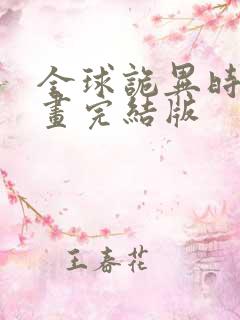 全球詭異時
畫完結版
王春花